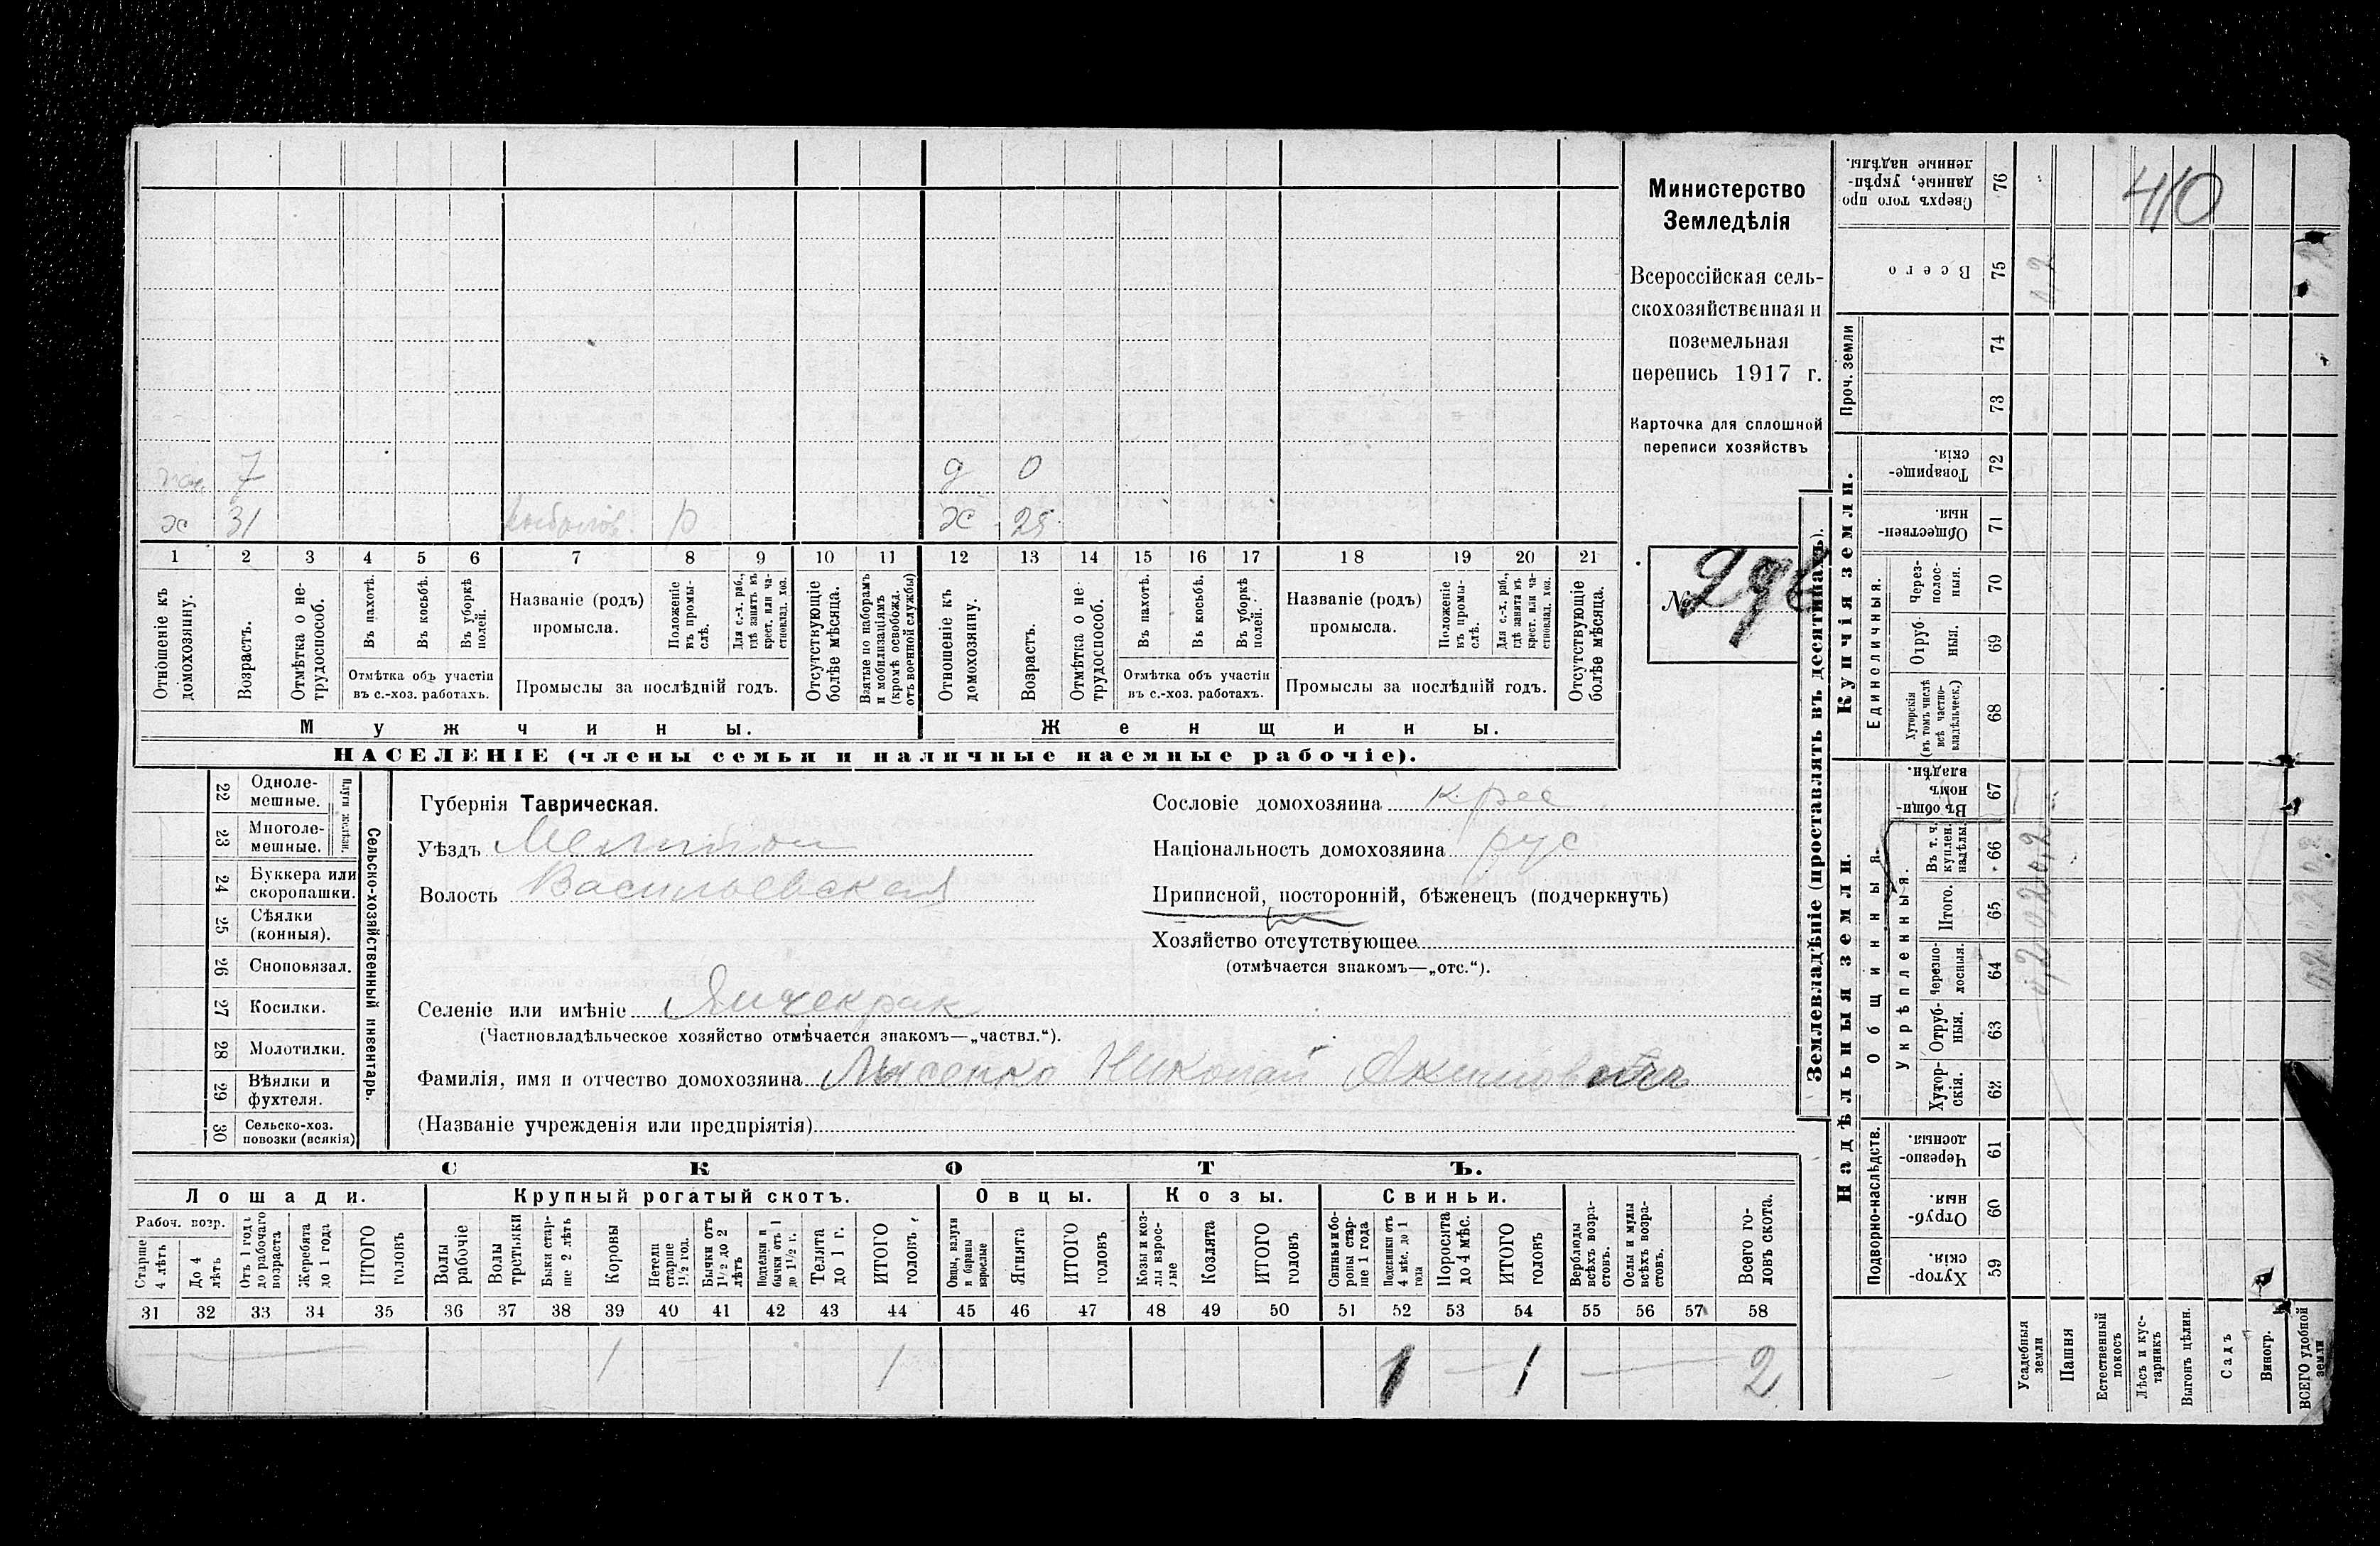 Министерство
Земледѣлія
Всероссійская сель-
скохозяйственная и
поземельная
перепись 1917 г.
Карточка для сплошной
переписи хозяйствъ
№ 296
7
д 0
х 31 р
х 25
1 2 3 4 5 6 7 8 9 10 11 12 13 14 15 16 17 18 19 20 21
Отношеніе къ домохозяину.
Возрастъ.
Отмѣтка о не-трудоспособ.
Въ пахотѣ.
Въ косьбѣ.
Въ уборкѣ полей.
Отмѣтка объ участіи
въ с.-хоз. работахъ.
Названіе (родъ)
промысла.
Положеніе въ промы-слѣ.
Для с.-х. раб., гдѣ занятъ въ крест. или ча-стновлад. хоз.
Промыслы за послѣдній годъ.
Отсутствующіе болѣе мѣсяца.
Взятые по наборамъ и мобилизаціямъ (кромѣ освобожд. отъ военной службы)
Отношеніе къ домохозяину.
Возрастъ.
Отмѣтка о не-трудоспособ.
Въ пахотѣ.
Въ косьбѣ.
Въ уборкѣ полей.
Отмѣтка объ участіи
въ с.-хоз. работахъ.
Названіе (родъ)
промысла.
Положеніе въ промы-слѣ.
Для с.-х. раб., гдѣ занята въ крест. или ча-стновлад. хоз.
Промыслы за послѣдній годъ.
Отсутствующіе болѣе мѣсяца.
Мужчины.
Женщины.
НАСЕЛЕНІЕ (члены семьи и наличные наемные рабочіе).
22 Одноле-мешные.
23 Многоле-мешные.
Плуги желѣзн.
24 Буккера или скоропашки.
25 Сѣялки (конныя).
26 Сноповязал.
27 Косилки.
28 Молотилки.
29 Вѣялки и фухтеля.
30 Сельско-хоз. повозки (всякія)
Сельско-хозяйственный инвентарь.
Губернія Таврическая.
Уѣздъ Мелитоп
Волость Васильевская
Сословіе домохозяина крес
Національность домохозяина рус
Приписной, посторонній, бѣженецъ (подчеркнуть)
Хозяйство отсутствующее
(отмѣчается знакомъ—„отс.“).
Селеніе или имѣніе Янчекрак
(Частновладѣльческое хозяйство отмѣчается знакомъ—„частвл.“).
Фамилія, имя и отчество домохозяина Лысенко Николай Акимович
(Названіе учрежденія или предпріятія)
СКОТЪ.
Лошади. Крупный рогатый скотъ. Овцы. Козы. Свиньи.
Рабоч. возр.
Старше 4 лѣтъ
До 4 лѣтъ
Отъ 1 года до рабочаго возраста
Жеребята до 1 года
ИТОГО головъ
Волы рабочіе
Волы третьяки
Быки стар-ше 2 лѣтъ
Коровы
Нетели старше 1½ год.
Бычки отъ 1½ до 2 лѣтъ
Подтелки и бычки отъ 1 до 1½ г.
Телята до 1 г.
ИТОГО головъ
Овцы, валухи и бараны взрослые
Ягнята
ИТОГО головъ
Козы и коз-лы взрос-лые
Козлята
ИТОГО головъ
Свиньи и бо-ровы стар-ше 1 года
Подсвинки отъ 4 мѣс. до 1 года
Поросята до 4 мѣс.
ИТОГО головъ
Верблюды всѣхъ возра-стовъ.
Ослы и мулы всѣхъ возра-стовъ.
Всего го-ловъ скота.
31 32 33 34 35 36 37 38 39 40 41 42 43 44 45 46 47 48 49 50 51 52 53 54 55 56 57 58
— 1 — 1 1 — 1 — 2
410
Землевладѣніе (проставлять въ десятинахъ).
Надѣльныя земли.
Купчія земли.
Проч. земли
Подворно-наслѣдств.
Общинныя.
Укрѣпленныя.
Единоличныя.
76 Сверхъ того про-данные, укрѣп-ленные надѣлы.
75 Всего
74
73
72 Товарище-скія.
71 Обществен-ныя.
70 Через-полос-ныя.
69 Отруб-ныя.
68 Хуторскія (въ томъ числѣ всѣ частно-владѣльческ.)
67 Въ общи-номъ владѣн.
66 Въ т. ч. куплен. надѣлы.
65 Итого.
64 Черезпо-лосныя.
63 Отруб-ныя.
62 Хутор-скія.
61 Черезпо-лосныя.
60 Отруб-ныя.
59 Хутор-скія.
Усадебныя земли
Пашня
Естественный покосъ
Лѣсъ и кус-тарникъ
Выгонъ цѣлин.
Садъ
Виногр.
ВСЕГО удобной земли